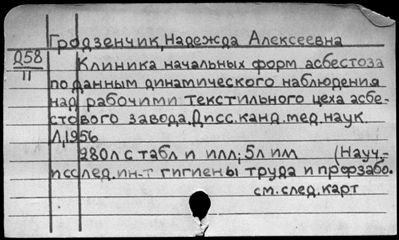 Гродзенчик, Надежда Алексеевна
Д58
11
Клиника начальных форм асбестоза
по данным динамического наблюдения
над рабочими текстильного цеха асбе-
стового завода. Дисс. канд. мед. наук
Л, 1956
280 л с табл и илл; 5 л им (Науч.-
исслед. ин-т гигиены труда и профзабо.
см. след. карт